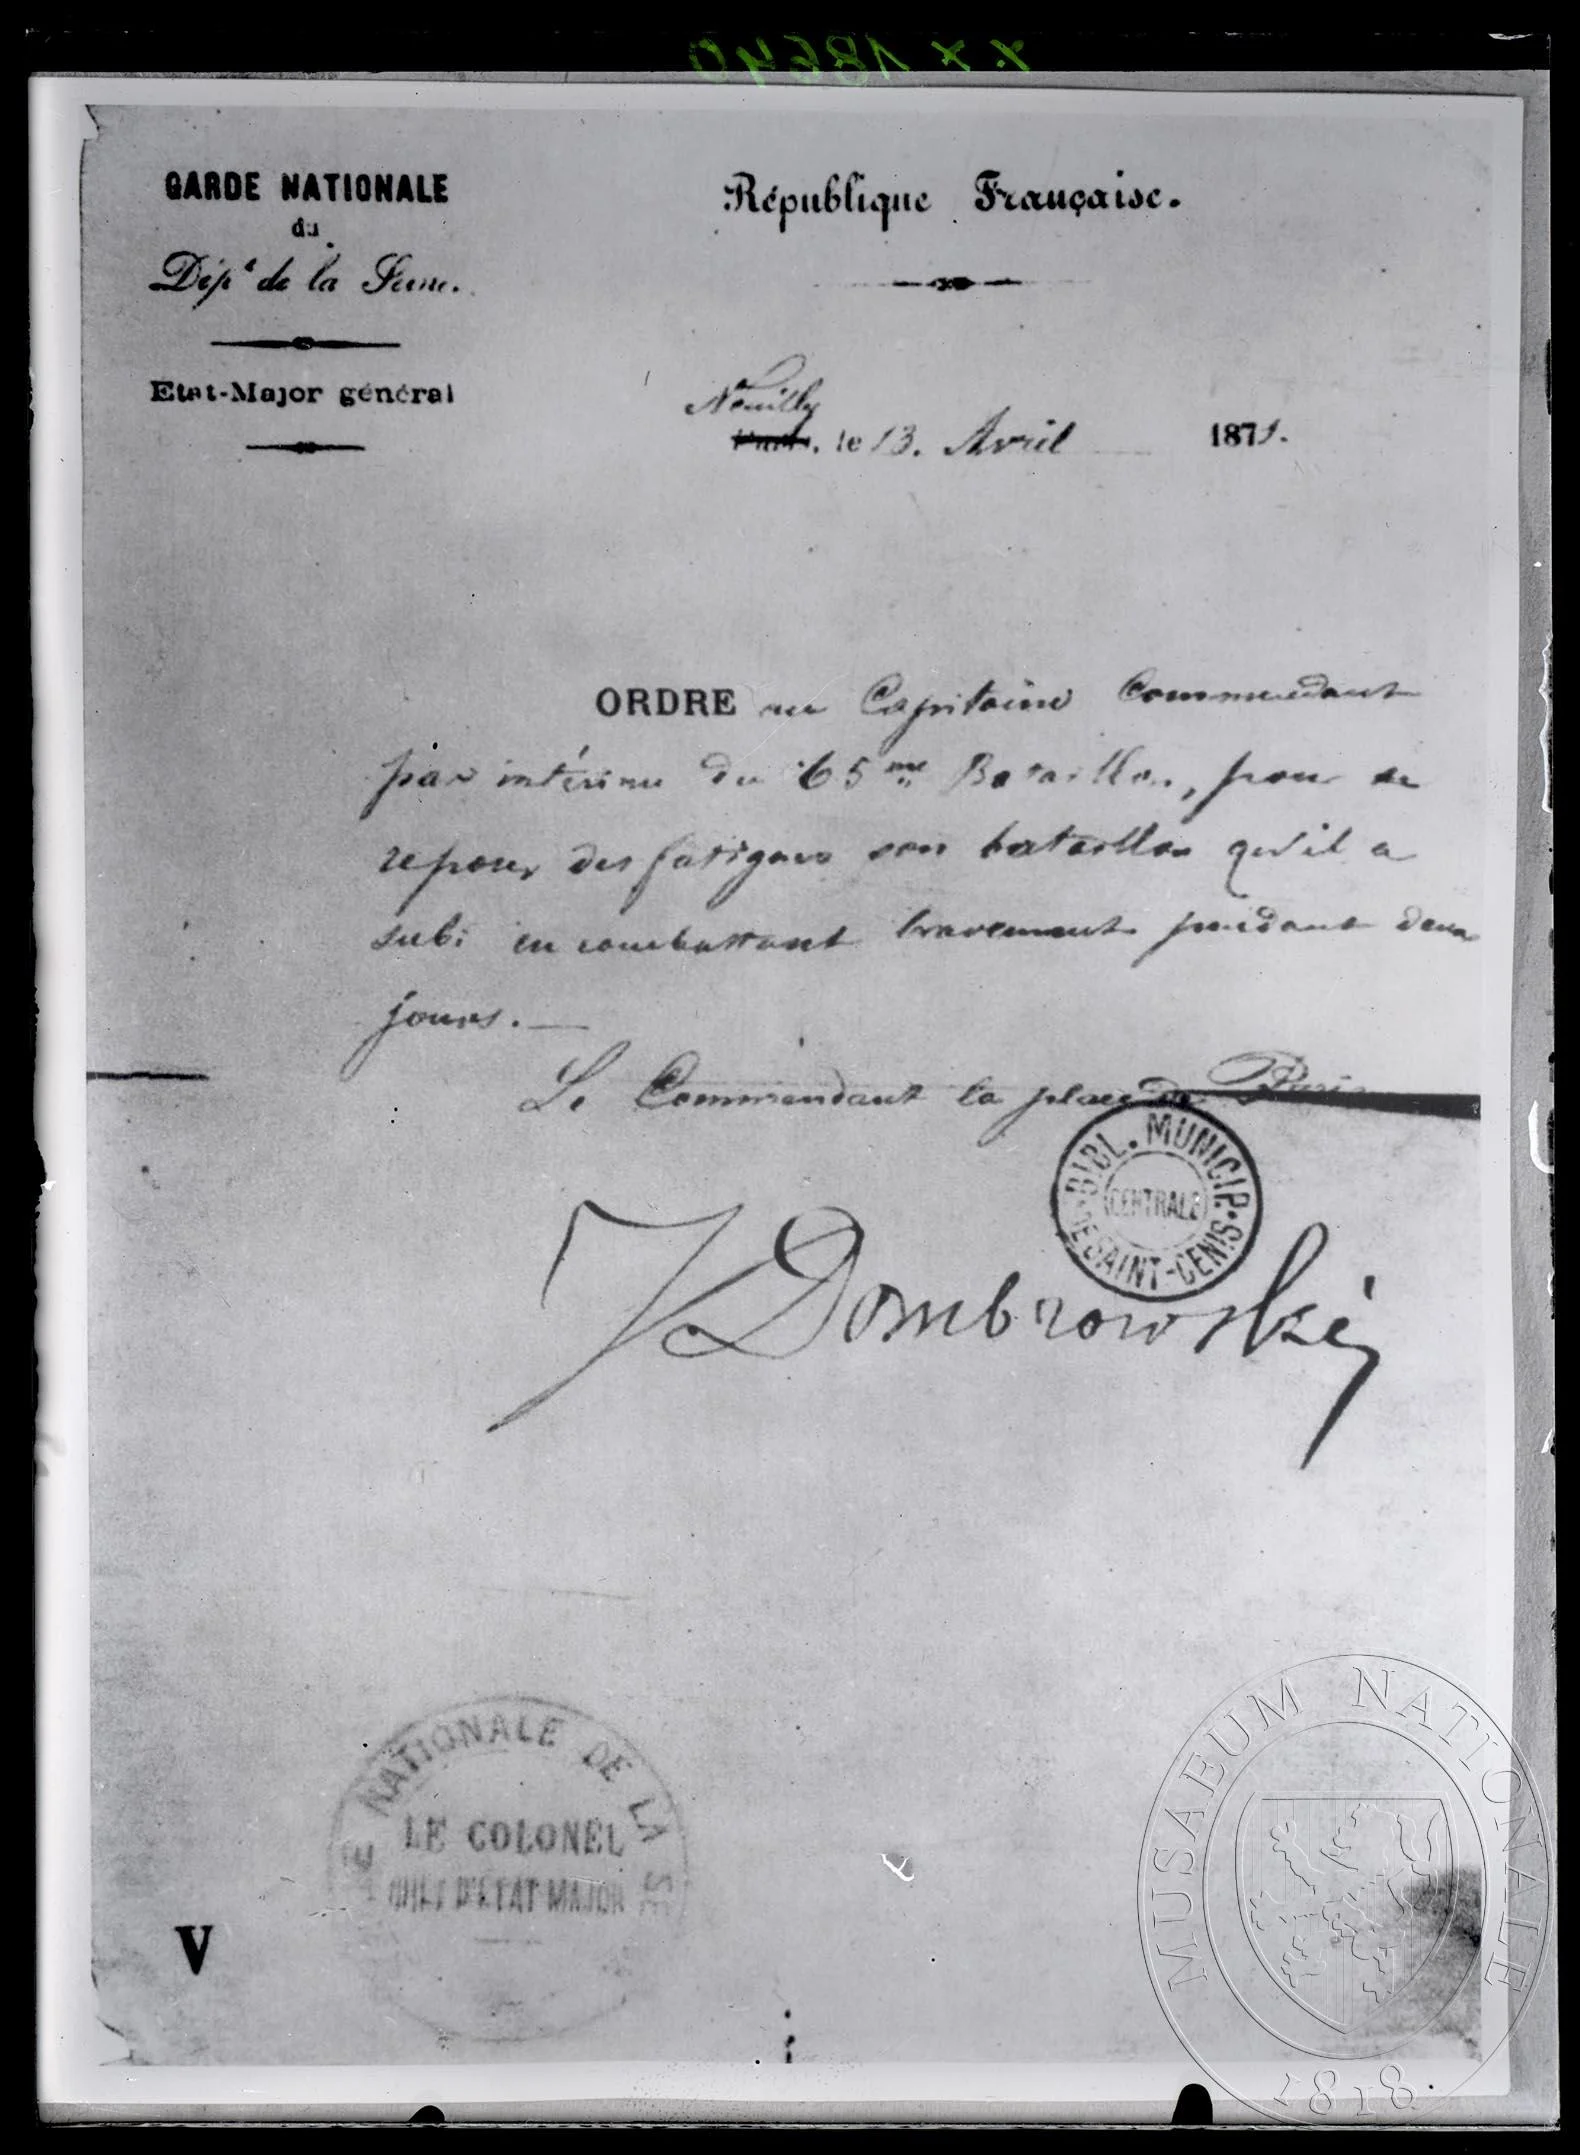 XX 18640
GARDE NATIONALE
du
Dépt de la Seine.
Etat-Major général
République Française.
Neuilly
Paris, le 13. Avril 1871.
ORDRE au Capitaine Commendant
par intérim du 65me Bataillon, pour se
reposer des fatigues son bataillon qu'il a
subi en combattant bravement pendant deux
jours.—
Le Commendant la place de Paris
J Dombrowski
BIBL. MUNICIP. DE SAINT-DENIS
CENTRALE
NATIONALE DE LA SE
LE COLONEL
CHEF D'ETAT MAJOR
V
MUSAEUM NATIONALE
1818